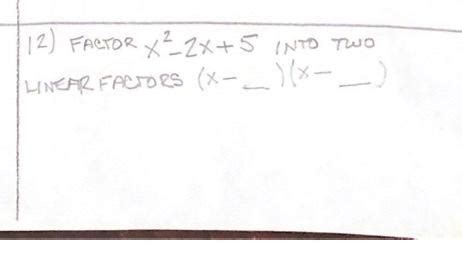 12) FACTOR x²-2x+5 INTO TWO
LINEAR FACTORS (x-_)(x-_)